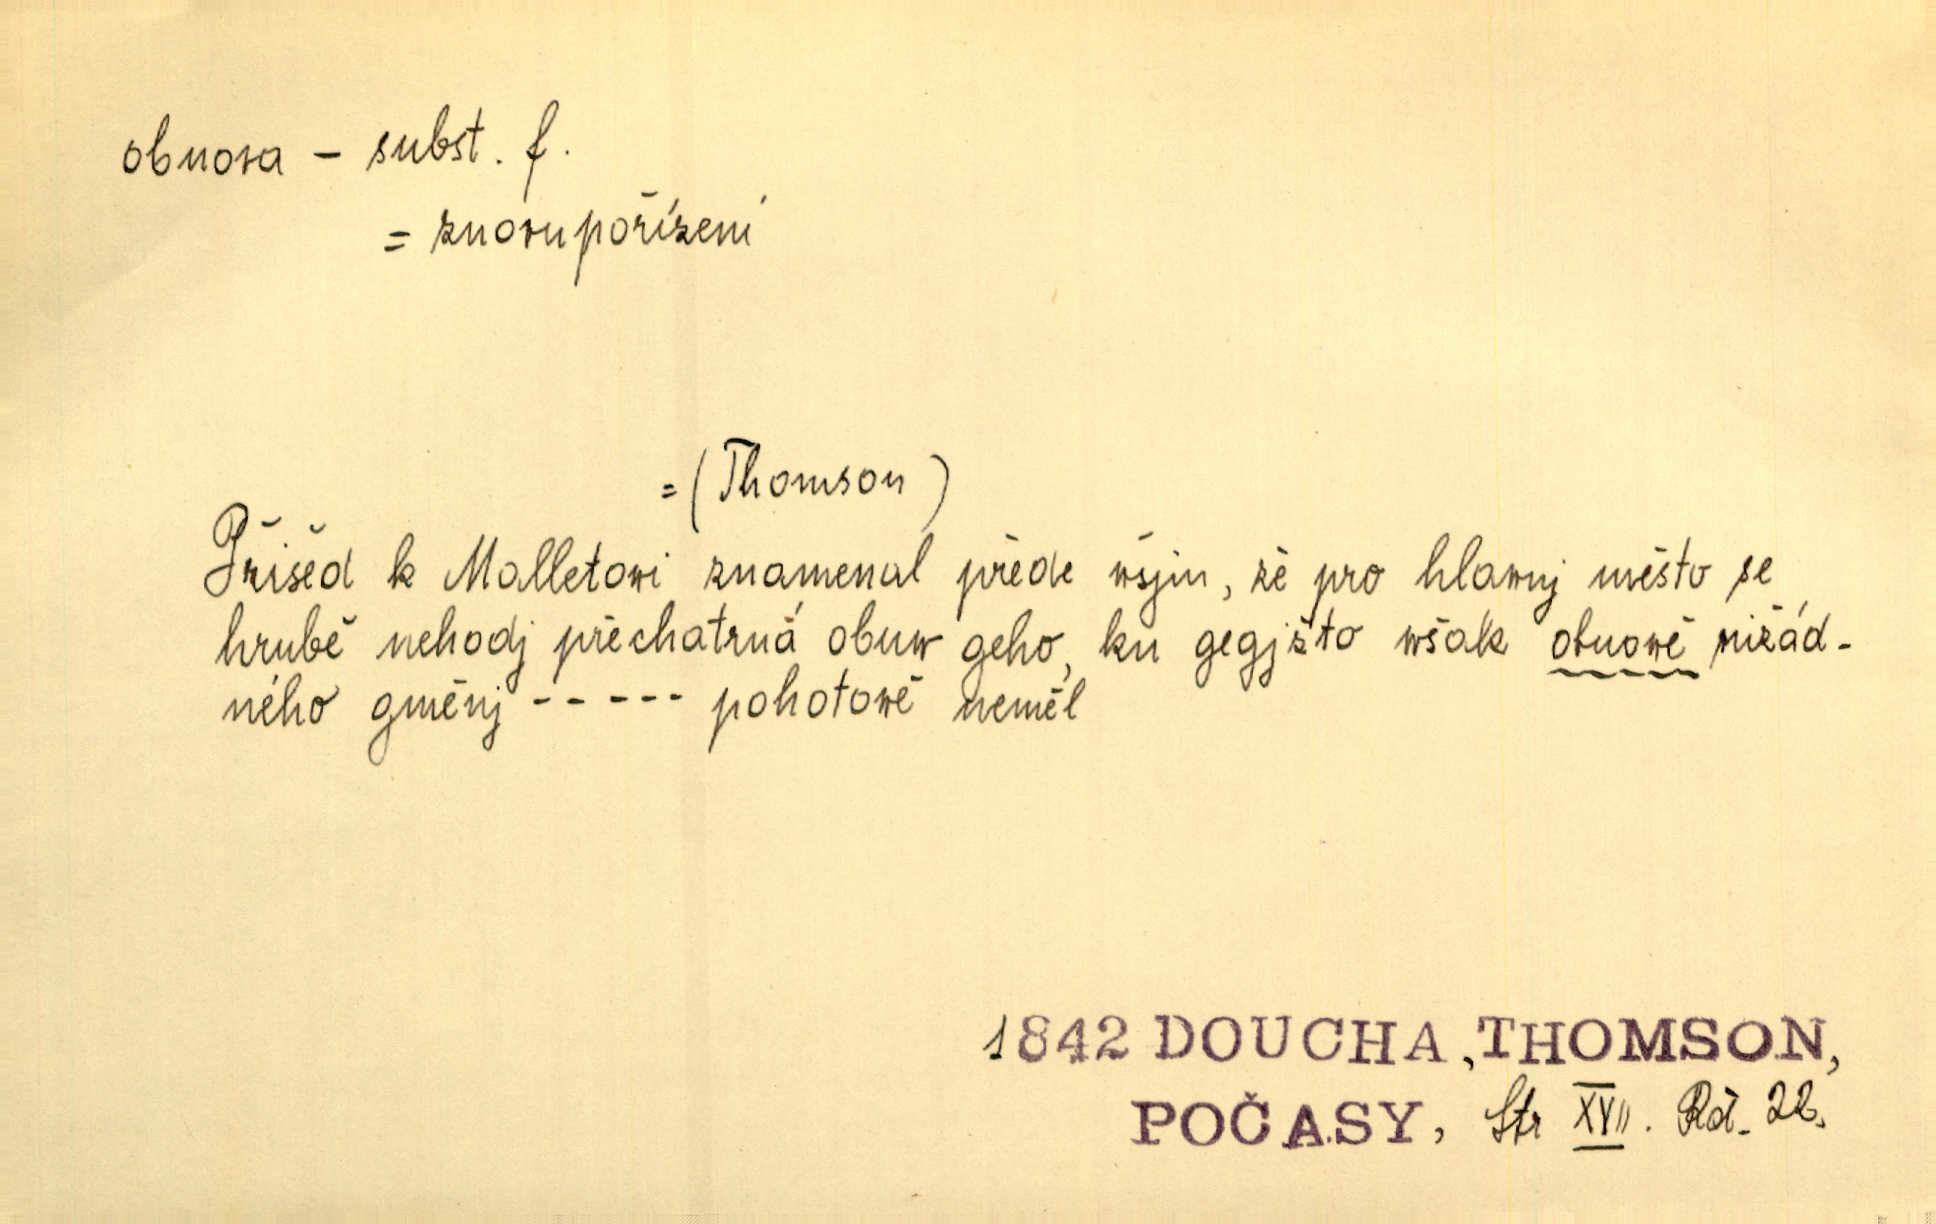 obnova – subst. f.
= znovupořízení
= (Thomson)
Přišed k Malletowi znamenal přede wšjm, že pro hlawnj město se
hrubě nehodj přechatrná obuw geho, ku gegjžto wšak obnowě nižád-
ného gměnj ----- pohotowě neměl
1842 DOUCHA, THOMSON,
POČASY, Str XVII. Řád. 22.